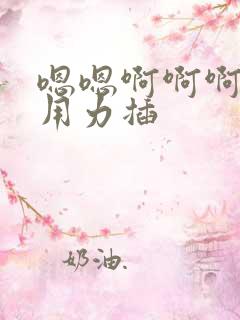 嗯嗯啊啊啊
用力插
奶油.